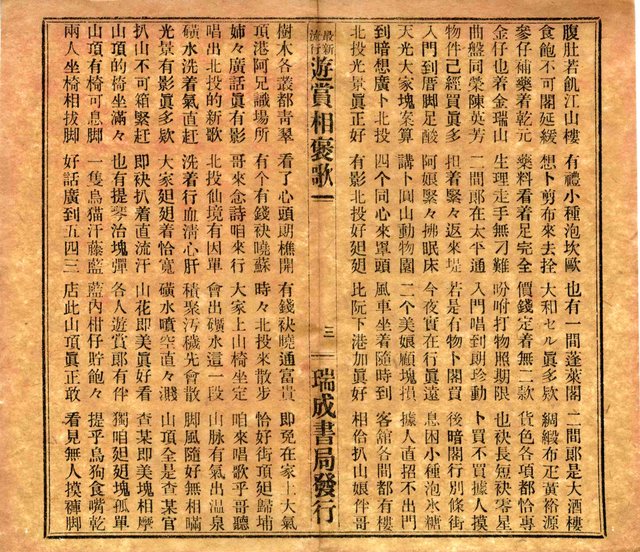 腹肚若飢江山樓 有禮小種泡坎歐 也有一間蓬萊閣 二間郎是大酒樓
食飽不可閣延緩 想卜剪布來去拴 大和セル眞多欵 綢緞布疋黃裕源
參仔補藥着乾元 藥料看着足完全 價錢定着無二款 貨色各項都恰專
金仔也着金瑞山 生理走手無刁難 吩咐打物照期限 也袂長短袂零星
曲盤同榮陳英芳 二間郎在太平通 入門唱到朗珍動 卜買不買據人摸
物件己經買眞多 担着緊々返來堤 若是有物卜閣買 後暗閣行別條街
入門到厝脚足酸 阿娘緊々拂眠床 今夜實在行眞遠 息困小種泡氷糖
天光大家塊案算 講卜圓山動物園 二个美娘顧塊損 據人直招不出門
到暗想廣卜北投 四个同心來罩頭 風車坐着隨時到 客舘各間都有樓
北投光景眞正好 有影北投好廻廻 比阮下港加眞好 相佮扒山娘伴哥
最新流行 遊賞相褒歌 三 瑞成書局發行
樹木各叢都青翠 看了心頭朗樵開 有錢袂曉通富貴 即免在家上大氣
頂港阿兄識場所 有个有錢袂曉蘇 時々北投來散步 恰好街頂廻歸埔
姉々廣話眞有影 哥來念詩咱來行 大家上山椅坐定 咱來唱歌乎哥聽
唱出北投的新歌 北投仙境有因單 會出礦水這一段 山脉有氣出溫泉
礦水洗着氣直赶 洗着行血清心肝 積聚汚穢先會散 脚風隨好無相瞞
光景有影眞多欵 大家廻廻着恰寬 礦水噴空直々濺 山頂全是查某官
扒山不可箱緊赶 即袂扒着直流汗 山花即美眞好看 查某即美塊相摩
山頂的椅坐滿々 也有提琴治塊彈 各人遊賞郎有伴 獨咱廻廻塊孤單
山頂有椅可息脚 一隻鳥猫汗藤籃 籃內柑仔貯飽々 提乎鳥狗食嘴乾
兩人坐椅相拔脚 好話廣到五四三 店此山頂眞正敢 看見無人摸褲脚